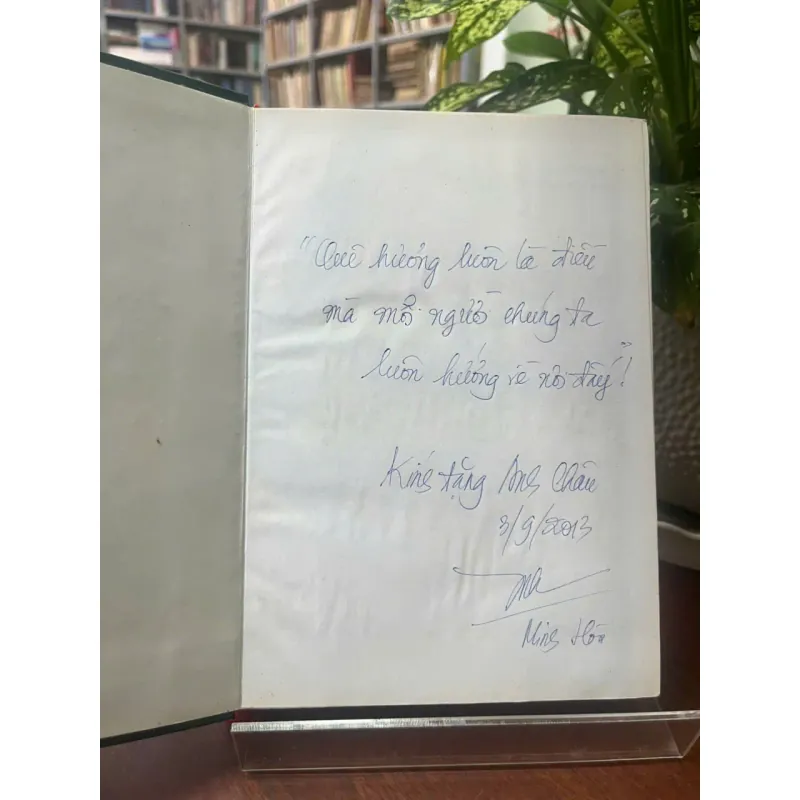 "Quê hương luôn là điều
mà mỗi người chúng ta
luôn hướng về nơi đấy"!
Kính tặng Anh Châu
3/9/2013
Minh